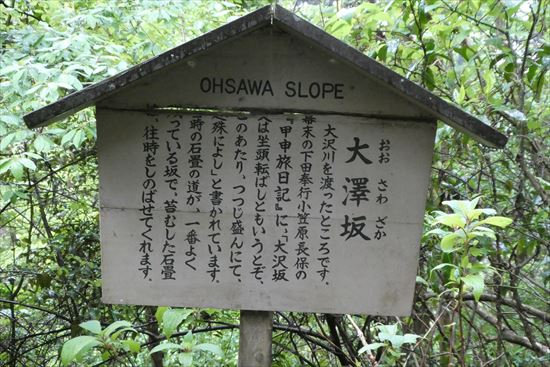 OHSAWA SLOPE
おお さわ ざか
大澤坂
大沢川を渡ったところです。
幕末の下田奉行小笠原長保の
『甲申旅日記』に、「大沢坂
又は坐頭転ばしともいうとぞ、
のあたり、つつじ盛んにて、
殊によし」と書かれています。
時の石畳の道が、一番よく
っている坂で、苔むした石畳
、往時をしのばせてくれます。